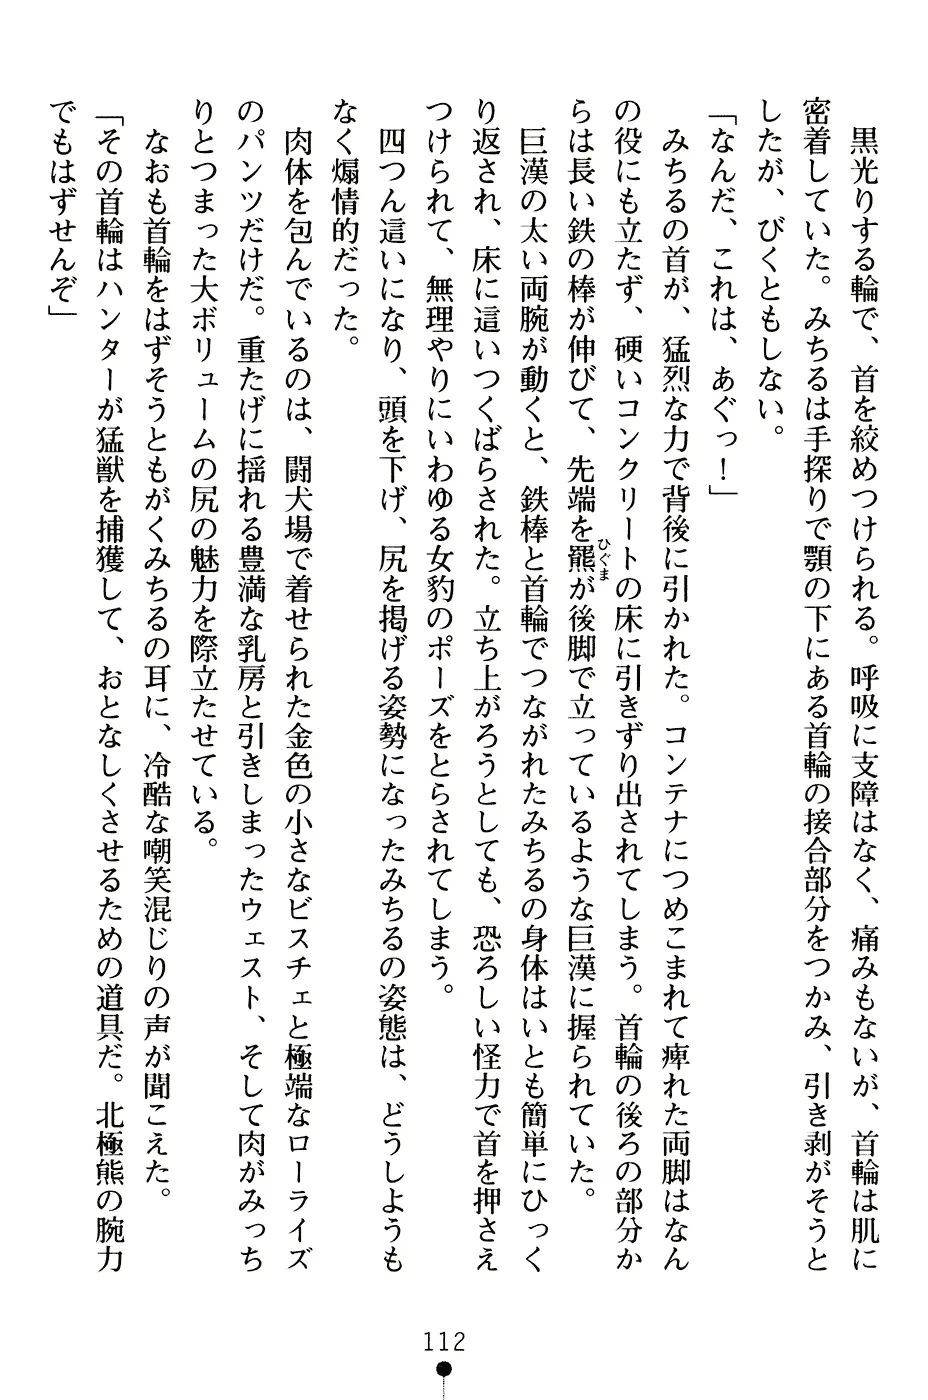 黒光りする輪で、首を絞めつけられる。呼吸に支障はなく、痛みもないが、首輪は肌に
密着していた。みちるは手探りで顎の下にある首輪の接合部分をつかみ、引き剥がそうと
したが、びくともしない。
「なんだ、これは、あぐっ！」
みちるの首が、猛烈な力で背後に引かれた。コンテナにつめこまれて痺れた両脚はなん
の役にも立たず、硬いコンクリートの床に引きずり出されてしまう。首輪の後ろの部分か
らは長い鉄の棒が伸びて、先端を羆が後脚で立っているような巨漢に握られていた。
ひぐま
巨漢の太い両腕が動くと、鉄棒と首輪でつながれたみちるの身体はいとも簡単にひっく
り返され、床に這いつくばらされた。立ち上がろうとしても、恐ろしい怪力で首を押さえ
つけられて、無理やりにいわゆる女豹のポーズをとらされてしまう。
四つん這いになり、頭を下げ、尻を掲げる姿勢になったみちるの姿態は、どうしようも
なく煽情的だった。
肉体を包んでいるのは、闘犬場で着せられた金色の小さなビスチェと極端なローライズ
のパンツだけだ。重たげに揺れる豊満な乳房と引きしまったウェスト、そして肉がみっち
りとつまった大ボリュームの尻の魅力を際立たせている。
なおも首輪をはずそうともがくみちるの耳に、冷酷な嘲笑混じりの声が聞こえた。
「その首輪はハンターが猛獣を捕獲して、おとなしくさせるための道具だ。北極熊の腕力
でもはずせんぞ」
112